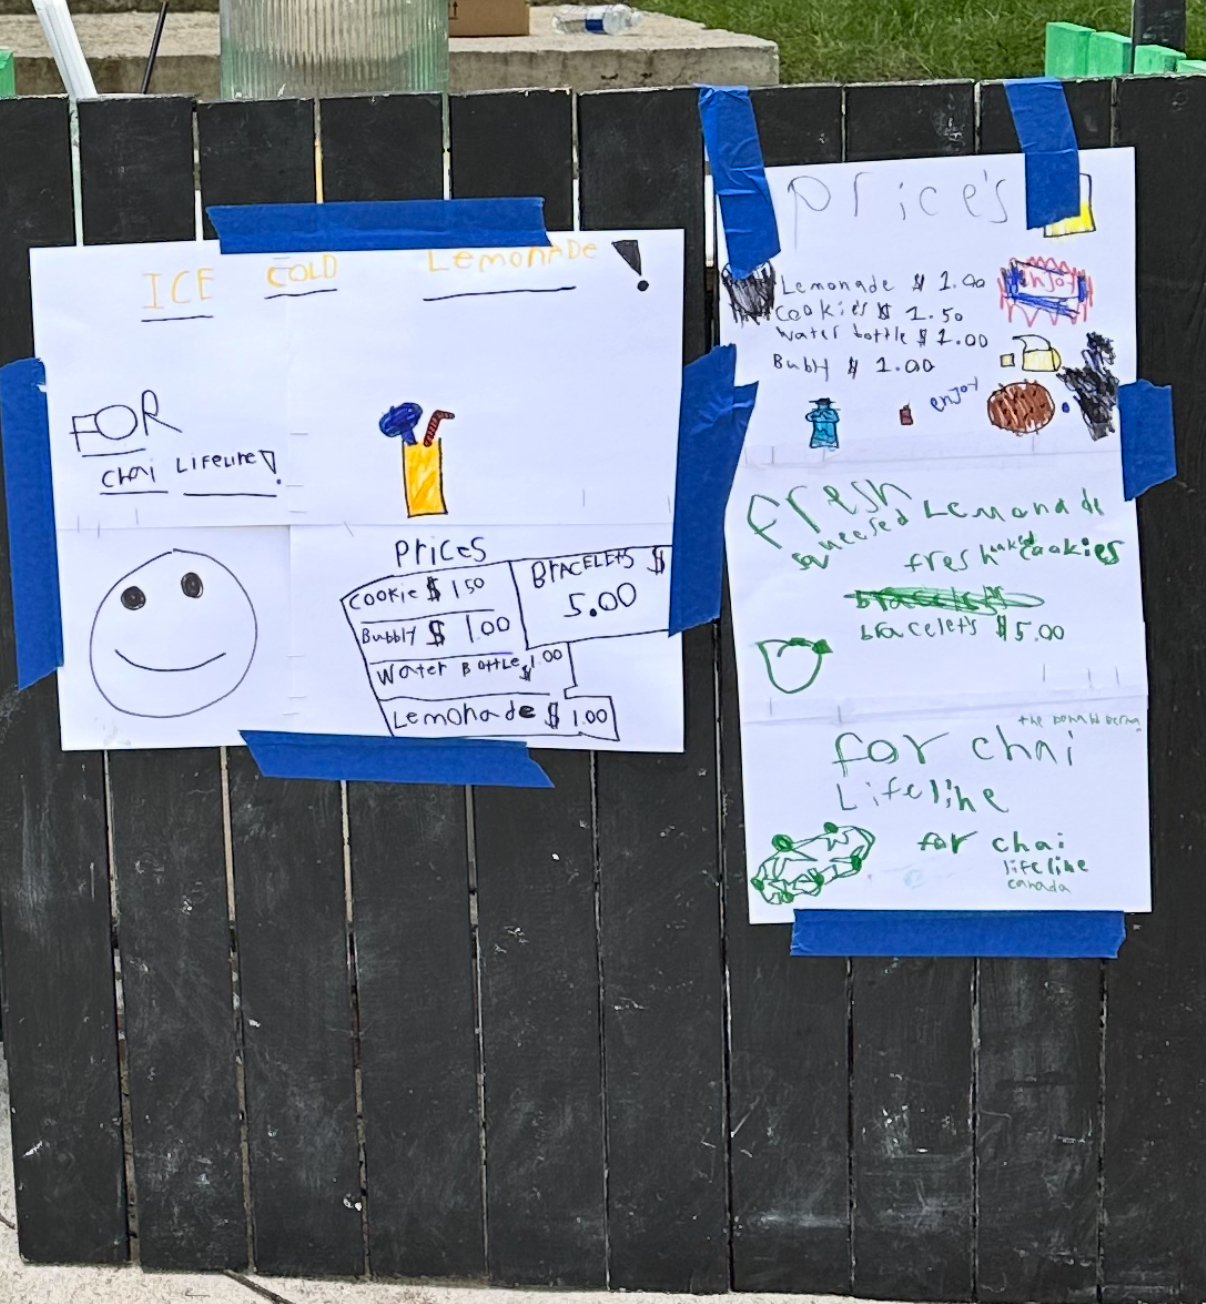 ICE COLD LEMONADE !
FOR
Chai LIFELINE!
Prices
Cookie $ 1.50
Bubbly $ 1.00
Water Bottle $1.00
Lemonade $ 1.00
BrACELETS $
5.00
Price's
Lemonade $ 1.00
cookies $ 1.50
water bottle $ 1.00
Bubly $ 1.00
enjoy
enjoy
fresh
squeesed Lemonade
fresh baked cookies
bracelets
bracelets $5.00
for chai
Lifeline
for chai
lifeline
canada